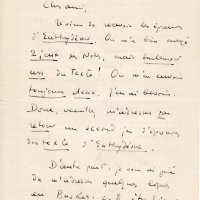 Cher ami,
Je viens de recevoir les épreuves
d'Euthydème. On m'a bien envoyé
2 jeux des notes, mais seulement
un du texte ! On m'en envoie
toujours deux, j'en ai besoin.
Donc, veuillez m'adresser par
retour un second jeu d'épreuves
du texte d'Euthydème.
D'autre part, je vous ai prié
de m'adresser quelques
en